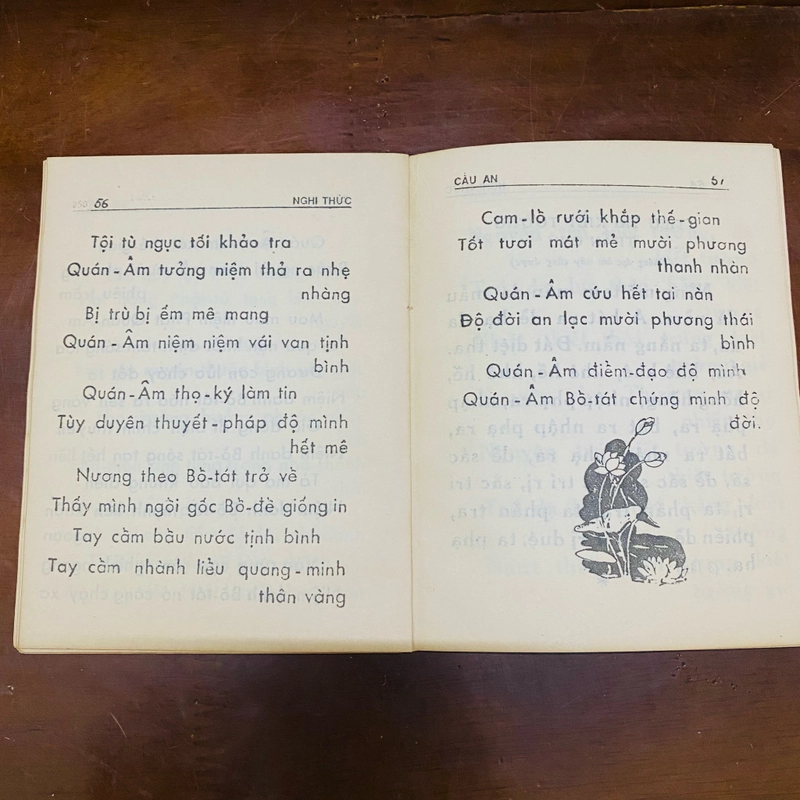 56 NGHI THỨC
Tội tù ngục tối khảo tra
Quán-Âm tưởng niệm thả ra nhẹ
nhàng
Bị trù bị ếm mê mang
Quán-Âm niệm niệm vái van tịnh
bình
Quán-Âm thọ-ký làm tin
Tùy duyên thuyết-pháp độ mình
hết mê
Nương theo Bồ-tát trở về
Thấy mình ngồi gốc Bồ-đề giống in
Tay cầm bầu nước tịnh bình
Tay cầm nhành liễu quang-minh
thân vàng
CẦU AN 57
Cam-lồ rưới khắp thế-gian
Tốt tươi mát mẻ mười phương
thanh nhàn
Quán-Âm cứu hết tai nàn
Độ đời an lạc mười phương thái
bình
Quán-Âm điểm-đạo độ mình
Quán-Âm Bồ-tát chứng minh độ
đời.